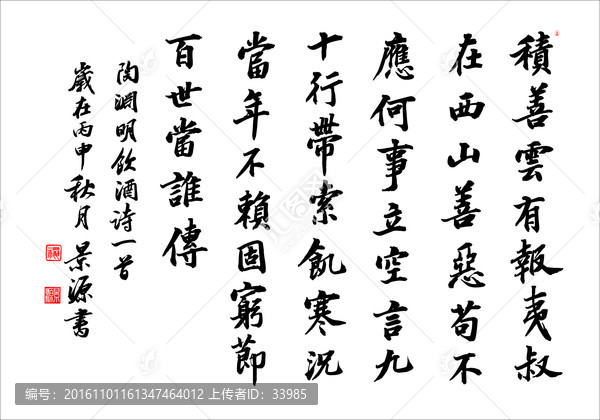 積善雲有報夷叔
在西山善惡苟不
應何事立空言九
十行帶索飢寒況
當年不賴固窮節
百世當誰傳
陶淵明飲酒诗一首
歲在丙申秋月景源書
编号：20161101161347464012 上传者ID：33985